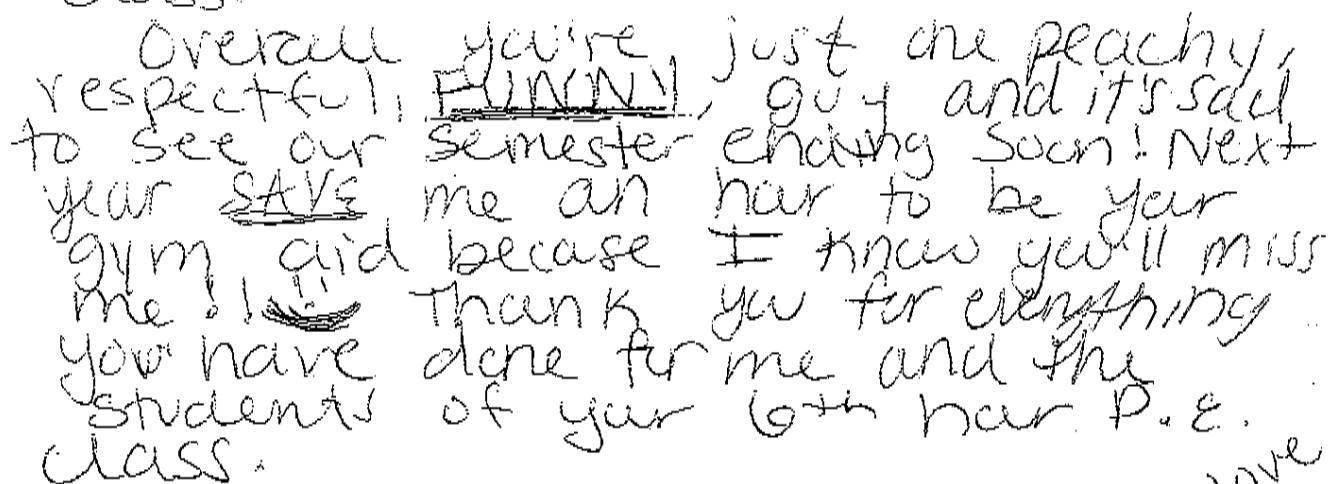 class.
Overall you're just one peachy,
respectful, FUNNY, guy and it's sad
to see our semester ending soon! Next
year SAVE me an hour to be your
gym aid because I know you'll miss
me!! Thank you for everything
you have done for me and the
students of your 6th hour P.E.
class.
love